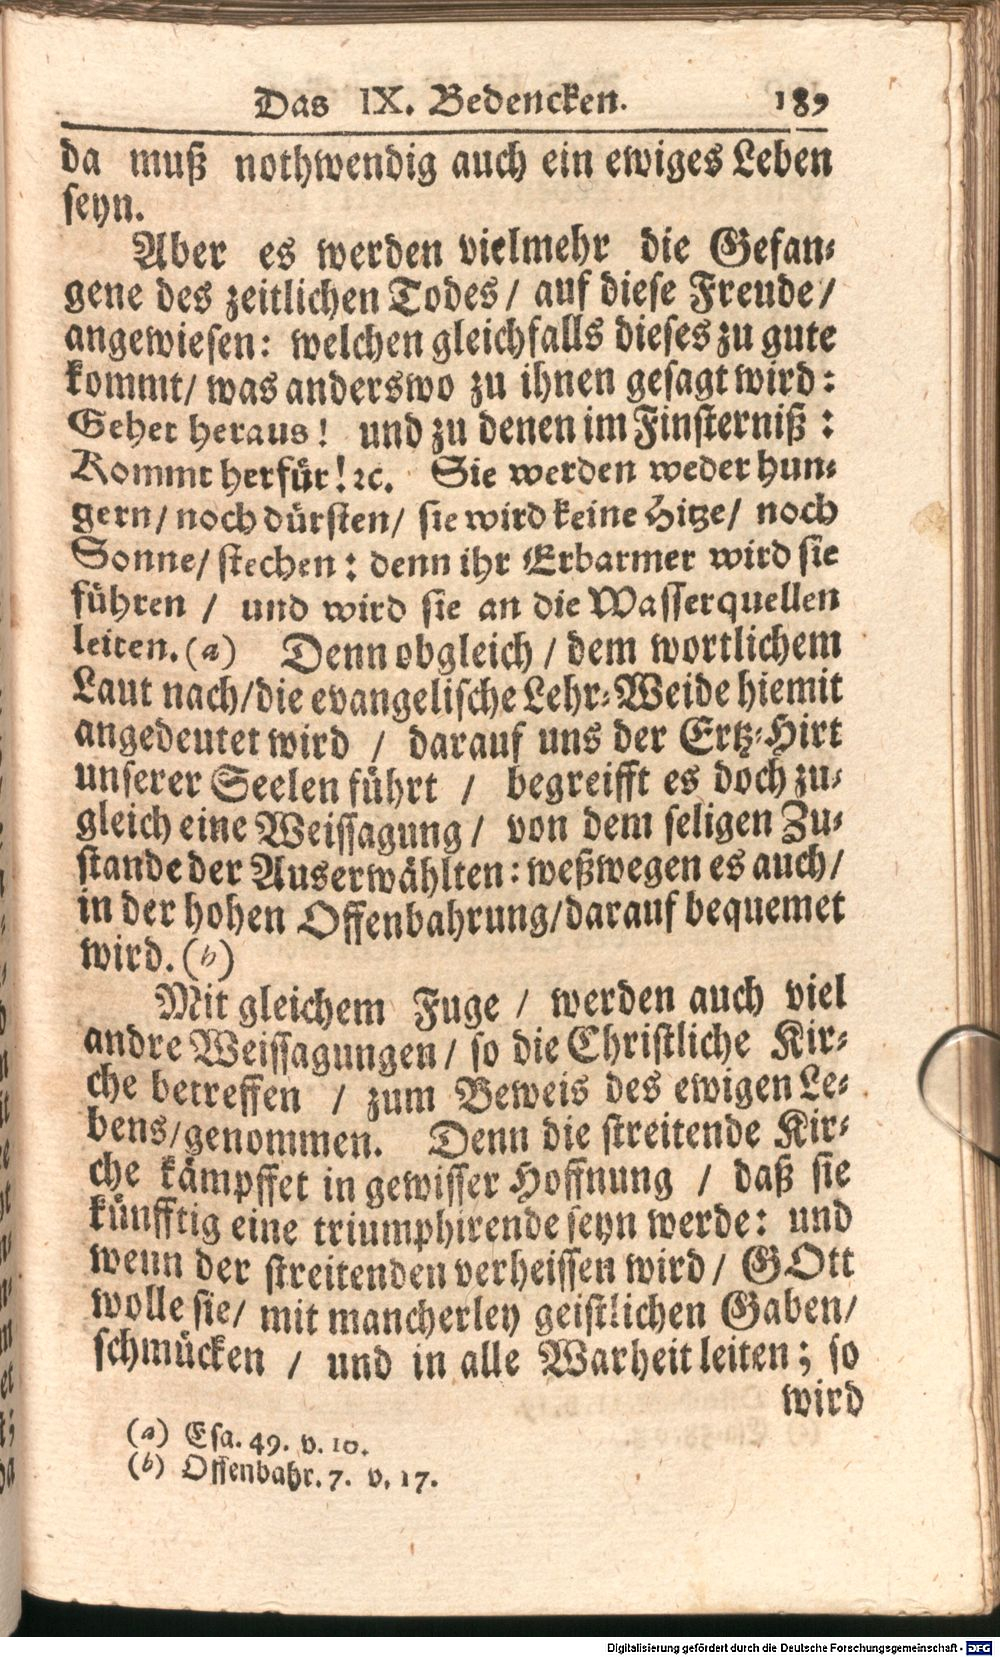 Das IX. Bedencken. 189
da muß nothwendig auch ein ewiges Leben
seyn.
Aber es werden vielmehr die Gefan-
gene des zeitlichen Todes / auf diese Freude /
angewiesen: welchen gleichfalls dieses zu gute
kommt / was anderswo zu ihnen gesagt wird:
Gehet heraus! und zu denen im Finsterniß:
Kommt herfür! ꝛc. Sie werden weder hun-
gern / noch dürsten / sie wird keine Hitze / noch
Sonne / stechen: denn ihr Erbarmer wird sie
führen / und wird sie an die Wasserquellen
leiten. (a) Denn obgleich / dem wortlichem
Laut nach / die evangelische Lehr-Weide hiemit
angedeutet wird / darauf uns der Ertz-Hirt
unserer Seelen führt / begreifft es doch zu-
gleich eine Weissagung / von dem seligen Zu-
stande der Auserwählten: weßwegen es auch /
in der hohen Offenbahrung / darauf bequemet
wird. (b)
Mit gleichem Fuge / werden auch viel
andre Weissagungen / so die Christliche Kir-
che betreffen / zum Beweis des ewigen Le-
bens / genommen. Denn die streitende Kir-
che kämpffet in gewisser Hoffnung / daß sie
künfftig eine triumphirende seyn werde: und
wenn der streitenden verheissen wird / GOtt
wolle sie / mit mancherley geistlichen Gaben /
schmücken / und in alle Warheit leiten; so
wird
(a) Esa. 49. v. 10.
(b) Offenbahr. 7. v. 17.
Digitalisierung gefördert durch die Deutsche Forschungsgemeinschaft - DFG